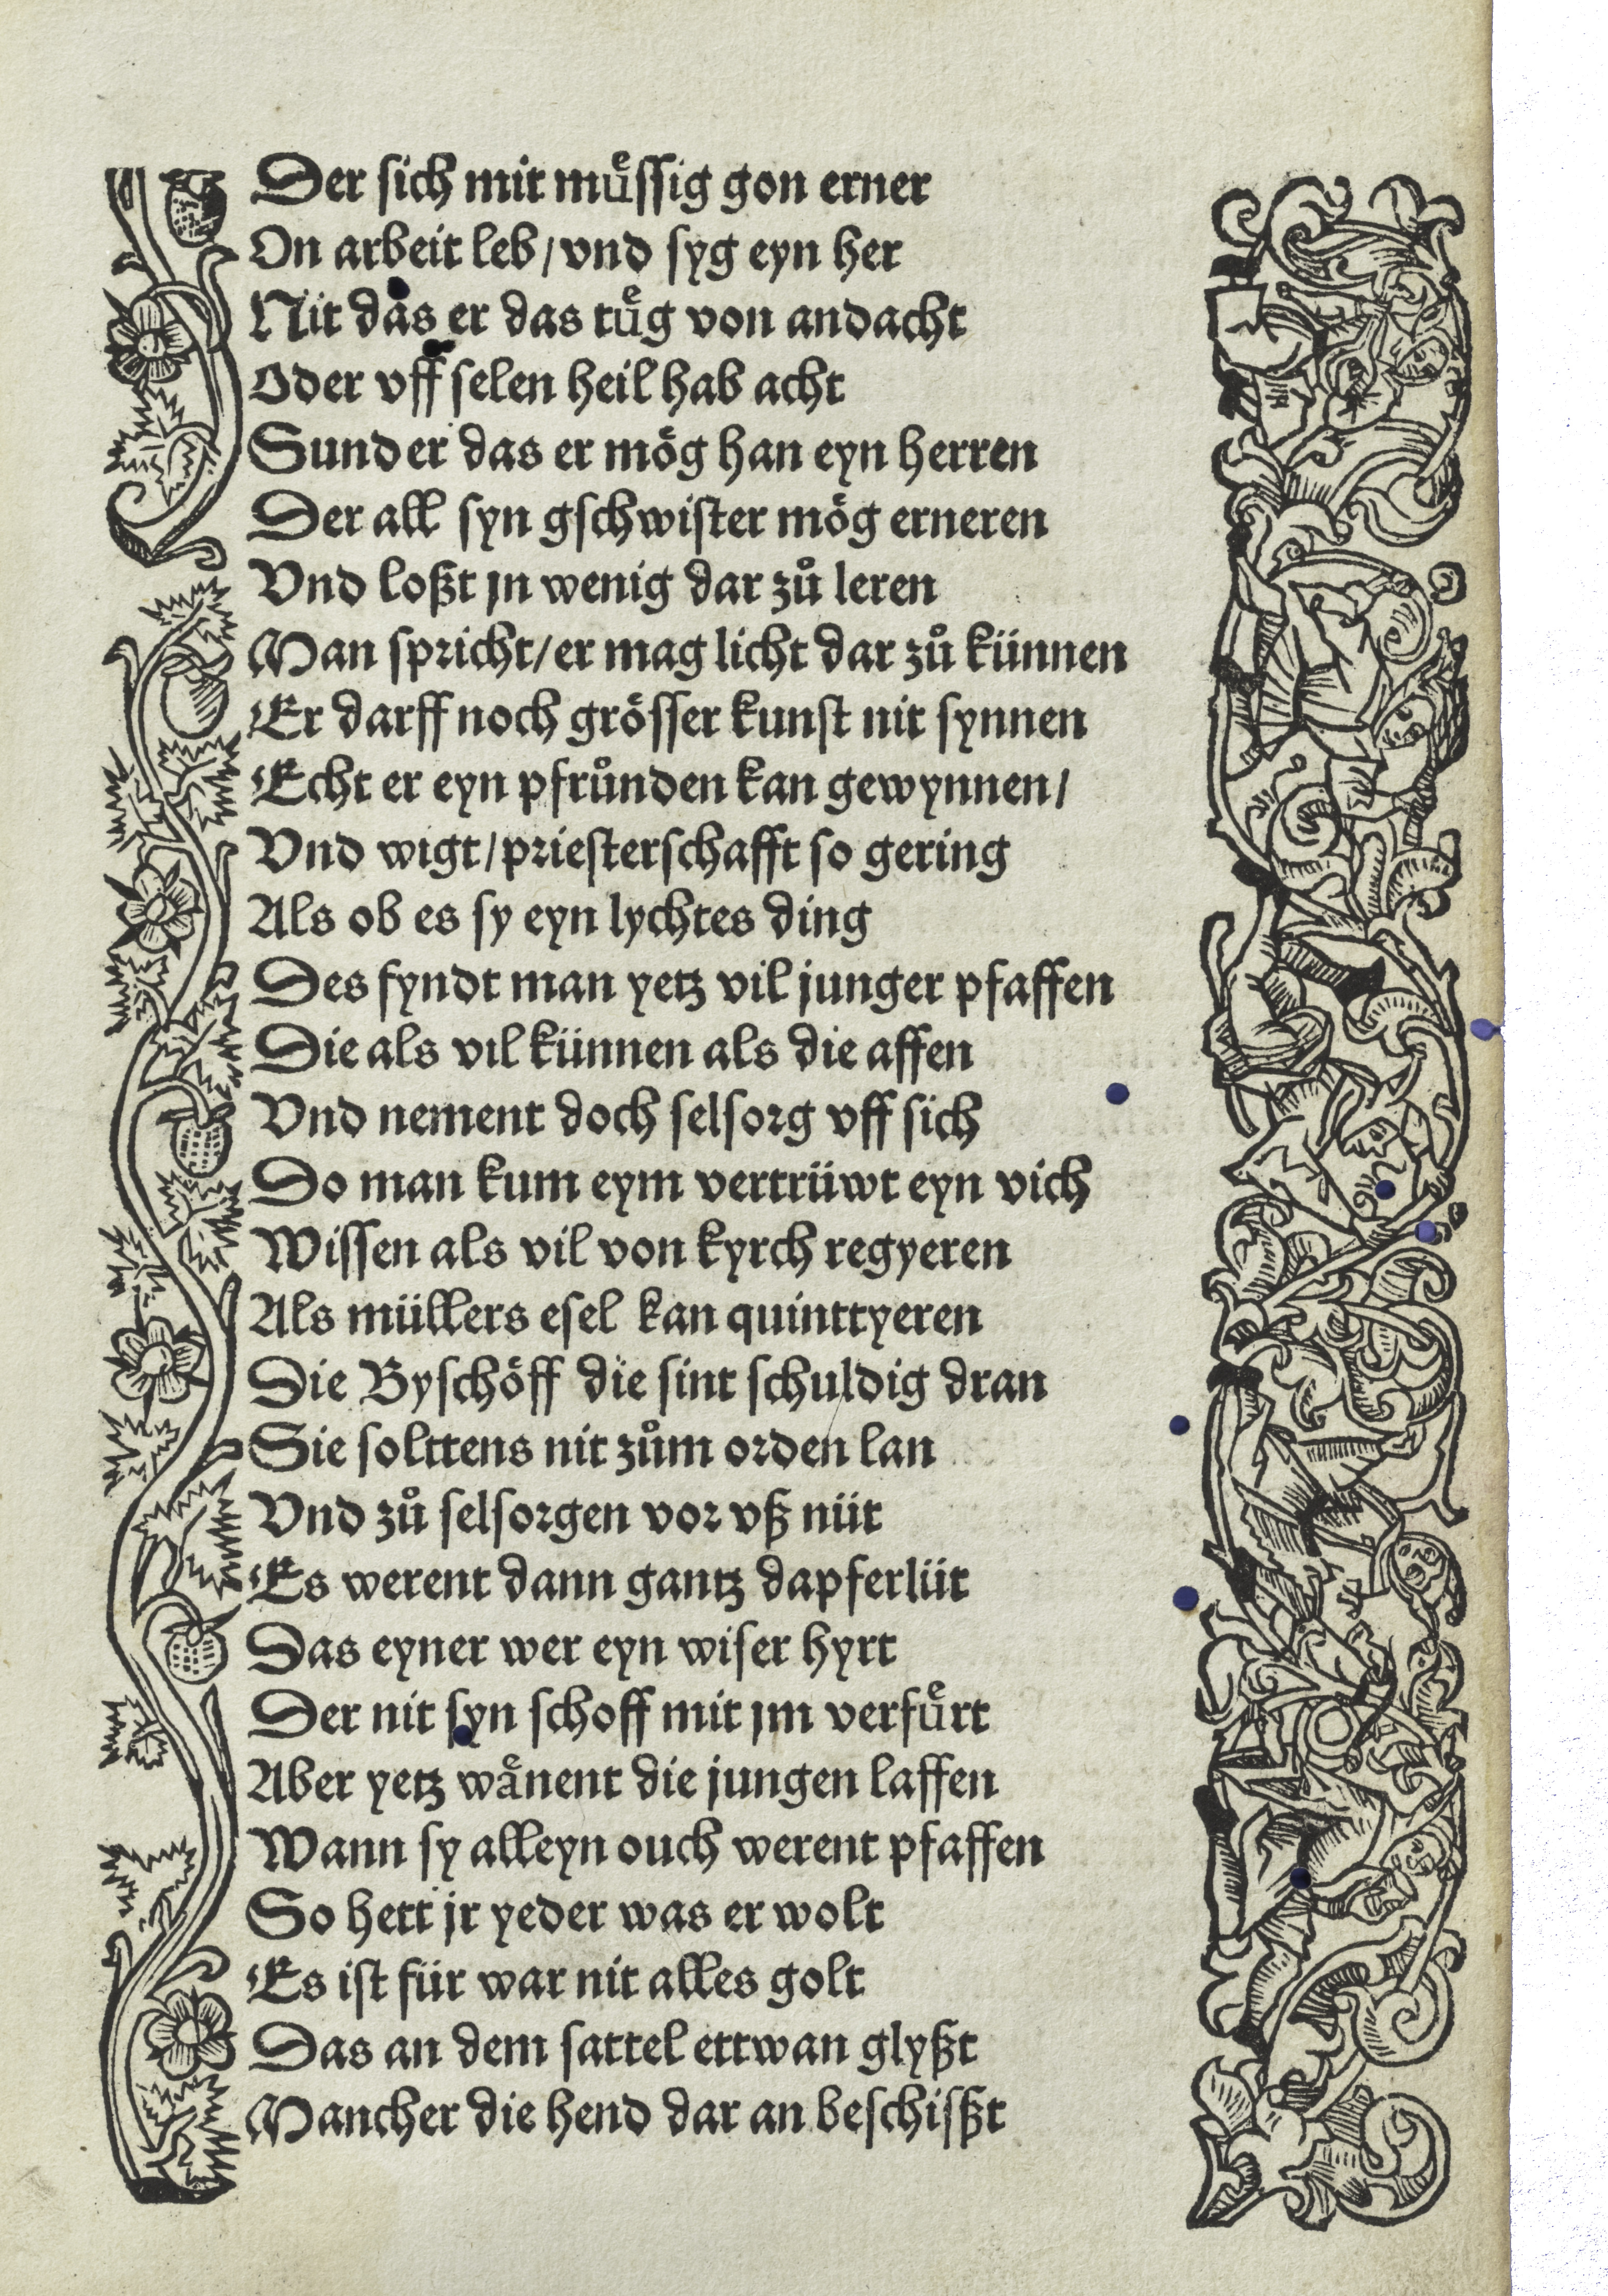 Der sich mit muͤssig gon erner
On arbeit leb/vnd syg eyn her
Nit das er das tuͤg von andacht
Oder vff selen heil hab acht
Sunder das er moͤg han eyn herren
Der all syn gschwister moͤg erneren
Vnd loßt jn wenig dar zuͦ leren
Man spricht/er mag licht dar zuͦ künnen
Er darff noch groͤsser kunst nit synnen
Echt er eyn pfruͦnden kan gewynnen/
Vnd wigt/priesterschafft so gering
Als ob es sy eyn lychtes ding
Des fyndt man yetz vil junger pfaffen
Die als vil künnen als die affen
Vnd nement doch selsorg vff sich
Do man kum eym vertrüwt eyn vich
Wissen als vil von kyrch regyeren
Als müllers esel kan quinttyeren
Die Byschoͤff die sint schuldig dran
Sie solttens nit zuͦm orden lan
Vnd zuͦ selsorgen vor vß nüt
Es werent dann gantz dapferlüt
Das eyner wer eyn wiser hyrt
Der nit syn schoff mit jm verfuͤrt
Aber yetz waͤnent die jungen laffen
Wann sy alleyn ouch werent pfaffen
So hett jr yeder was er wolt
Es ist für war nit alles golt
Das an dem sattel ettwan glyßt
Mancher die hend dar an beschisßt